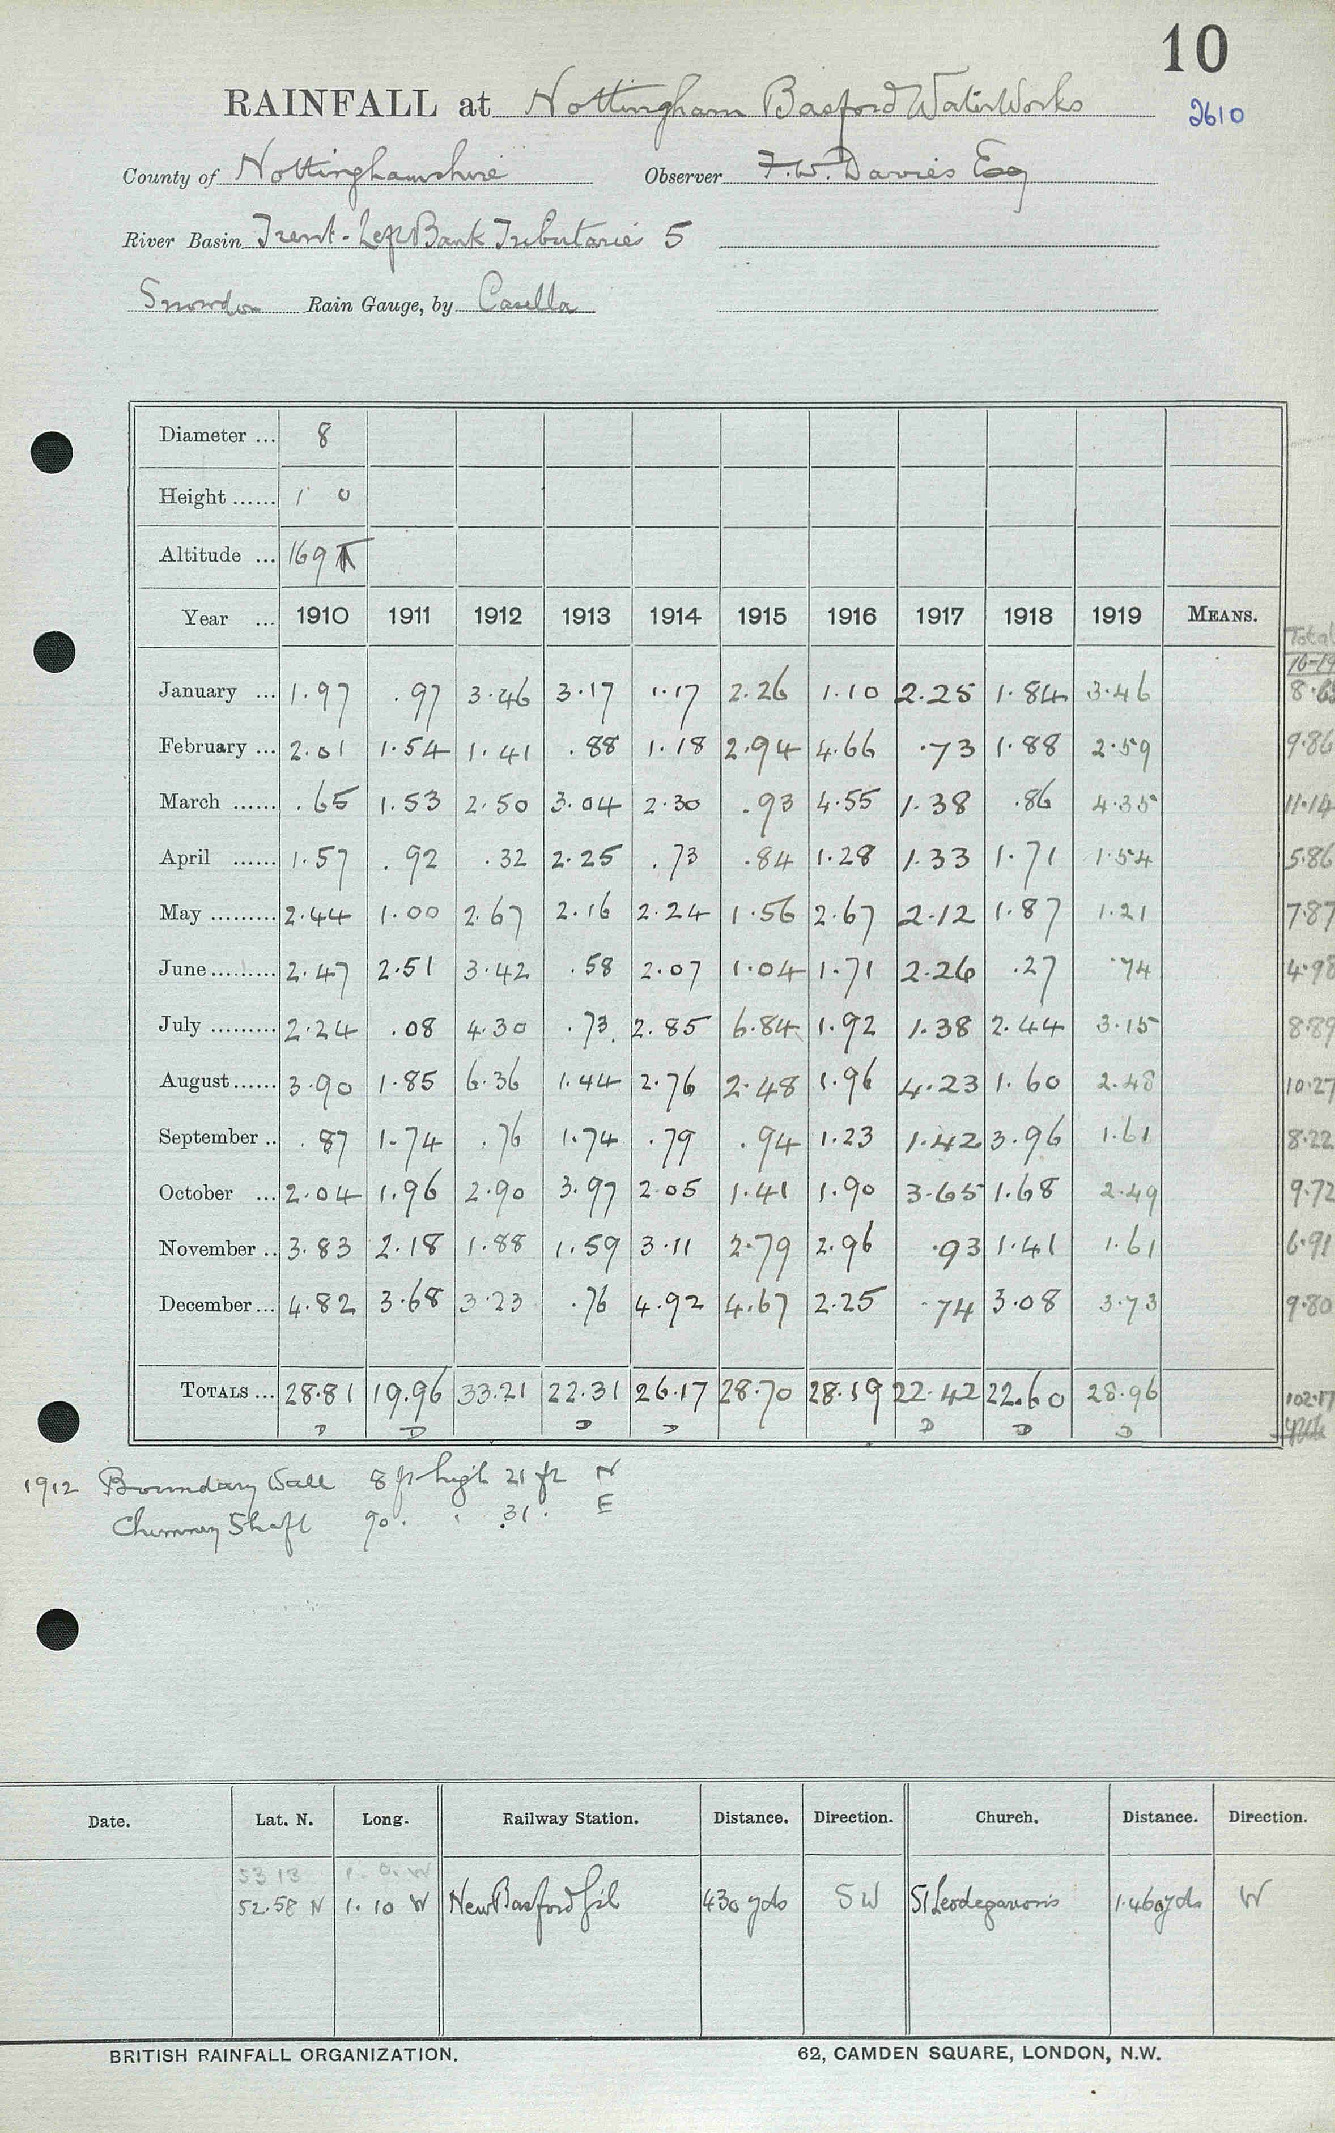 10
RAINFALL at Nottingham Basford WaterWorks
2610
County of Nottinghamshire Observer F.W. Davies Esq
River Basin Trent - Left Bank Tributaries 5
Snowdon Rain Gauge, by Casella
Diameter ... 8
Height ...... 1 0
Altitude ... 169
Year ... 1910 1911 1912 1913 1914 1915 1916 1917 1918 1919 MEANS. Total
16-19
January ... 1.97 .97 3.46 3.17 1.17 2.26 1.10 2.25 1.84 3.46 8.65
February ... 2.01 1.54 1.41 .88 1.18 2.94 4.66 .73 1.88 2.59 9.86
March ...... .65 1.53 2.50 3.04 2.30 .93 4.55 1.38 .86 4.35 11.14
April ...... 1.57 .92 .32 2.25 .73 .84 1.28 1.33 1.71 1.54 5.86
May ......... 2.44 1.00 2.67 2.16 2.24 1.56 2.67 2.12 1.87 1.21 7.87
June ......... 2.47 2.51 3.42 .58 2.07 1.04 1.71 2.26 .27 .74 4.98
July ......... 2.24 .08 4.30 .73 2.85 6.84 1.92 1.38 2.44 3.15 8.89
August ...... 3.90 1.85 6.36 1.44 2.76 2.48 1.96 4.23 1.60 2.48 10.27
September .. .87 1.74 .76 1.74 .79 .94 1.23 1.42 3.96 1.61 8.22
October ... 2.04 1.96 2.90 3.97 2.05 1.41 1.90 3.65 1.68 2.49 9.72
November .. 3.83 2.18 1.88 1.59 3.11 2.79 2.96 .93 1.41 1.61 6.91
December ... 4.82 3.68 3.23 .76 4.92 4.67 2.25 .74 3.08 3.73 9.80
TOTALS ... 28.81 19.96 33.21 22.31 26.17 28.70 28.19 22.42 22.60 28.96 102.17
D D D D D D D
1912 Boundary Wall 8 ft high 21 ft N
Chimney Shaft 90 . . 31 . E
Date. Lat. N. Long. Railway Station. Distance. Direction. Church. Distance. Direction.
53 13 1. 0. W
52.58 N 1. 10 W New Basford 430 yds SW St Leodegarius 1.460yds W
BRITISH RAINFALL ORGANIZATION. 62, CAMDEN SQUARE, LONDON, N.W.